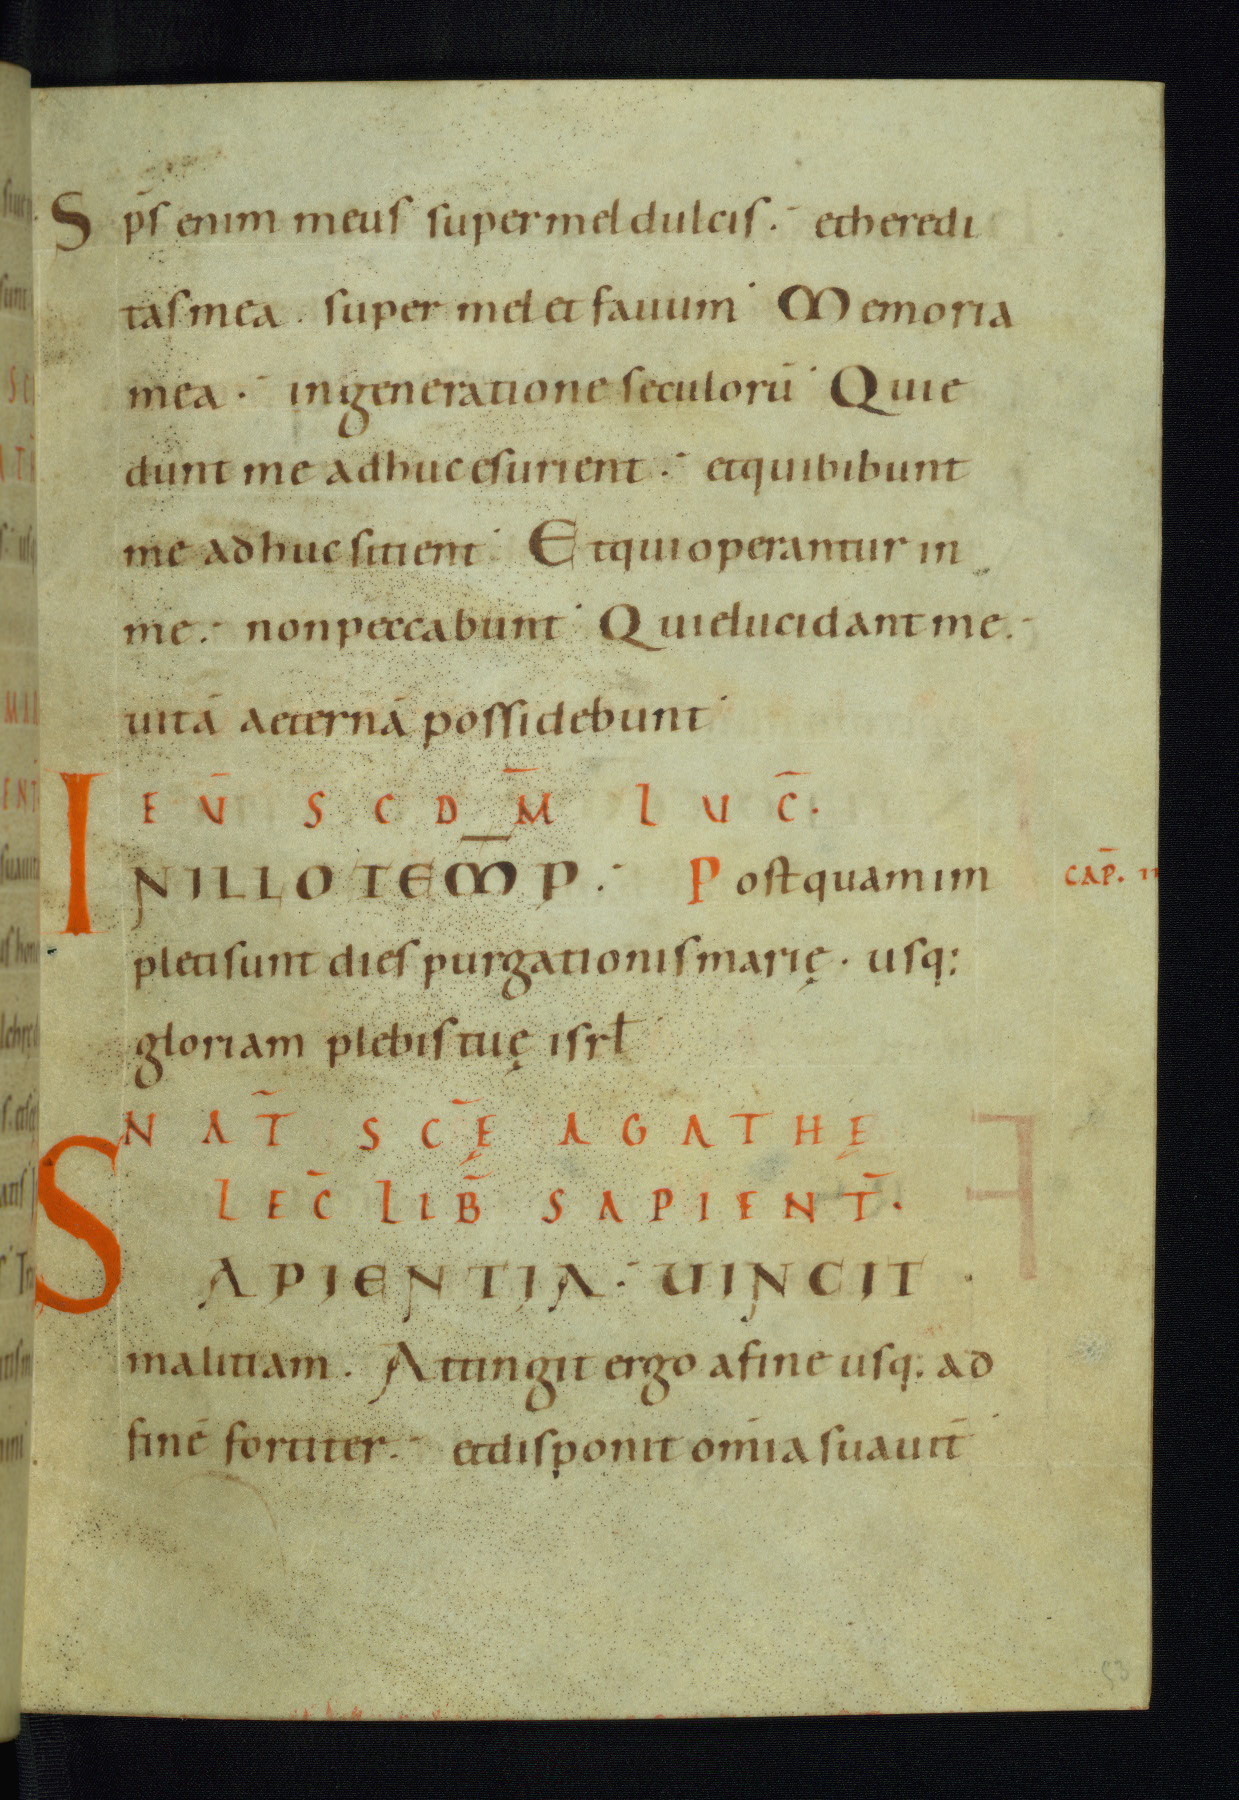 Sp̄s enim meus super mel dulcis. et heredi
tas mea. super mel et fauum. Memoria
mea. in generatione seculorū. Qui e
dunt me adhuc esurient. et qui bibunt
me adhuc sitient. Et qui operantur in
me. non peccabunt. Qui elucidant me.
uitā aeternā possidebunt.
EŪ SCDM̄ LUC̄.
IN ILLO TEM̄P. Postquam im
CAP̄. II
pleti sunt dies purgationis marię. usq:
gloriam plebis tuę isrł
NAT̄ SC̄Ę AGATHĘ
LEC̄ LIB̄ SAPIENT̄.
SAPIENTIA. UINCIT
malitiam. Attingit ergo a fine usq: ad
finē fortiter. et disponit om̄ia suauit̄
53